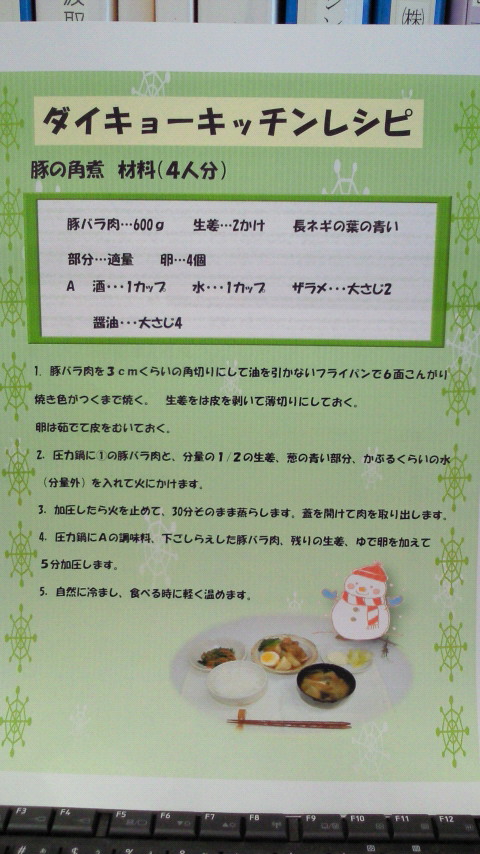 (株)
ダイキョーキッチンレシピ
豚の角煮 材料(4人分)
豚バラ肉…600g 生姜…2かけ 長ネギの葉の青い
部分…適量 卵…4個
A 酒･･･1カップ 水･･･1カップ ザラメ･･･大さじ2
醤油･･･大さじ4
1. 豚バラ肉を3cmくらいの角切りにして油を引かないフライパンで6面こんがり
焼き色がつくまで焼く。 生姜をは皮を剥いて薄切りにしておく。
卵は茹でて皮をむいておく。
2. 圧力鍋に①の豚バラ肉と、分量の1/2の生姜、葱の青い部分、かぶるくらいの水
(分量外)を入れて火にかけます。
3. 加圧したら火を止めて、30分そのまま蒸らします。蓋を開けて肉を取り出します。
4. 圧力鍋にAの調味料、下ごしらえした豚バラ肉、残りの生姜、ゆで卵を加えて
5分加圧します。
5. 自然に冷まし、食べる時に軽く温めます。
F3 F4 F5 F6 F7 F8 F9 F10 F11 F12